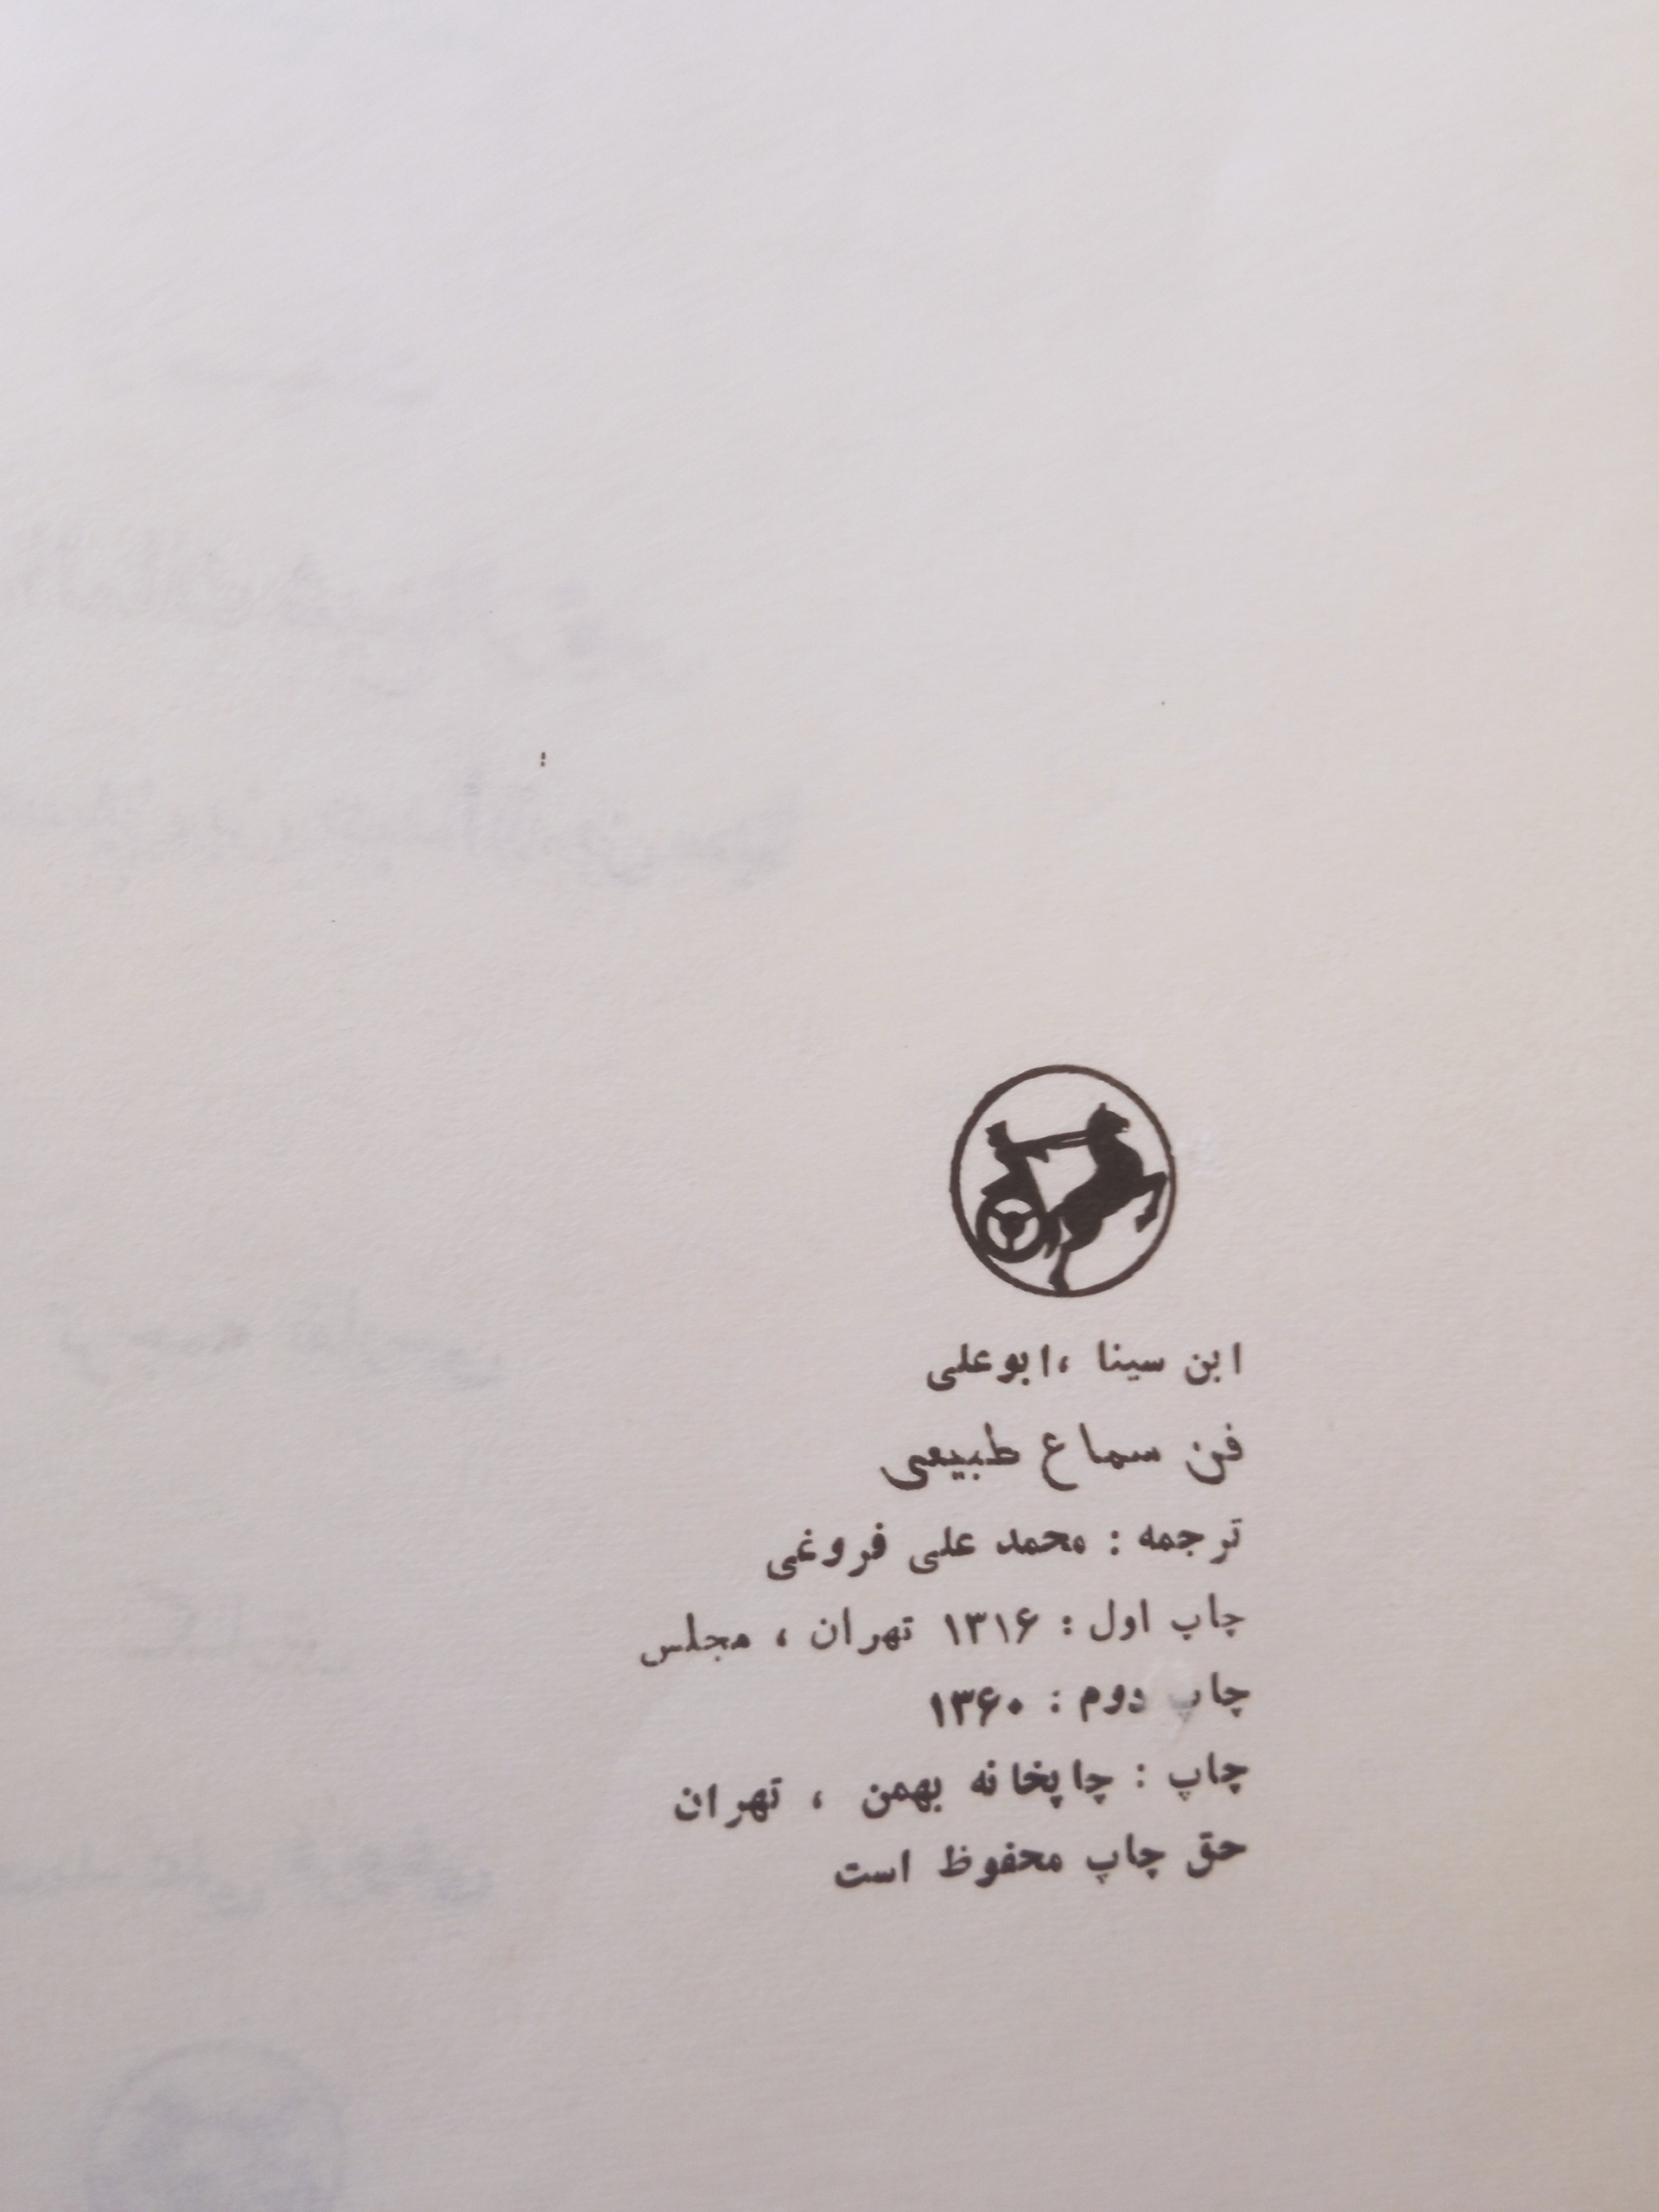 ابن سینا ،ابوعلی
فن سماع طبیعی
ترجمه : محمد علی فروغی
چاپ اول : ۱۳۱۶ تهران ، مجلس
چاپ دوم : ۱۳۶۰
چاپ : چاپخانه بهمن ، تهران
حق چاپ محفوظ است